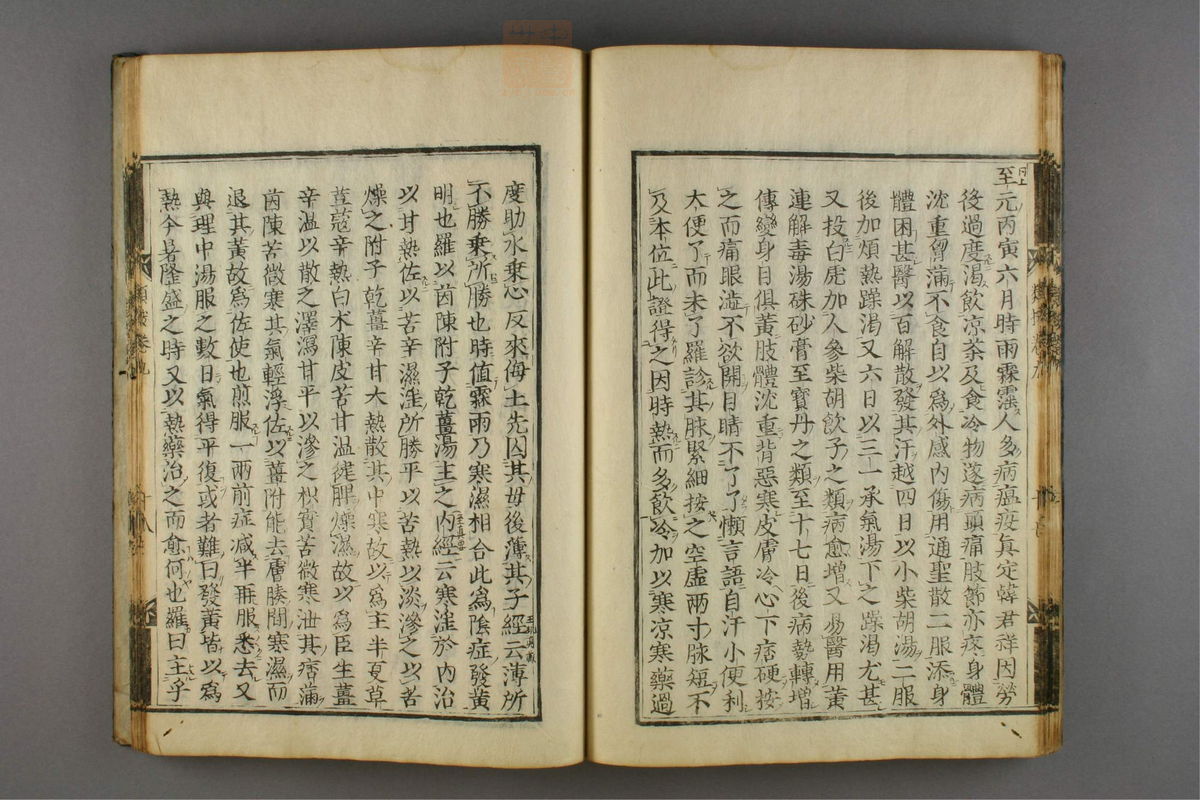 至元丙寅六月時雨霖霪人多病瘟疫眞定韓君祥因勞
後過度渴飲凉茶及食冷物遂病頭痛肢節亦疼身體
沈重胷滿不食自以爲外感內傷用通聖散二服添身
體困甚醫以百解散發其汗越四日以小柴胡湯二服
後加煩熱躁渴又六日以三一承氣湯下之躁渴尤甚
又投白虎加人參柴胡飲子之類病愈增又易醫用黃
連解毒湯硃砂膏至寶丹之類至十七日後病勢轉增
傳變身目俱黃肢體沈重背惡寒皮膚冷心下痞硬按
之而痛眼澁不欲開目睛不了了懶言語自汗小便利
大便了而未了羅診其脉緊細按之空虛兩寸脉短不
及本位此證得之因時熱而多飲冷加以寒凉寒藥過
度助水乗心反來侮土先囚其母後薄其子經云薄所
不勝乗所勝也時值霖雨乃寒濕相合此爲陰症發黃
明也羅以茵陳附子乾薑湯主之內經云寒淫於內治
以甘熱佐以苦辛濕淫所勝平以苦熱以淡滲之以苦
燥之附子乾薑辛甘大熱散其中寒故以爲主半夏草
荳蔻辛熱白朮陳皮苦甘温健脾燥濕故以爲臣生薑
辛温以散之澤瀉甘平以滲之枳實苦微寒泄其痞滿
茵陳苦微寒其氣輕浮佐以薑附能去膚腠間寒濕而
退其黃故爲佐使也煎服一兩前症减半再服悉去又
與理中湯服之數日氣得平復或者難曰發黃皆以爲
熱今暑隆盛之時又以熱藥治之而愈何也羅曰主乎